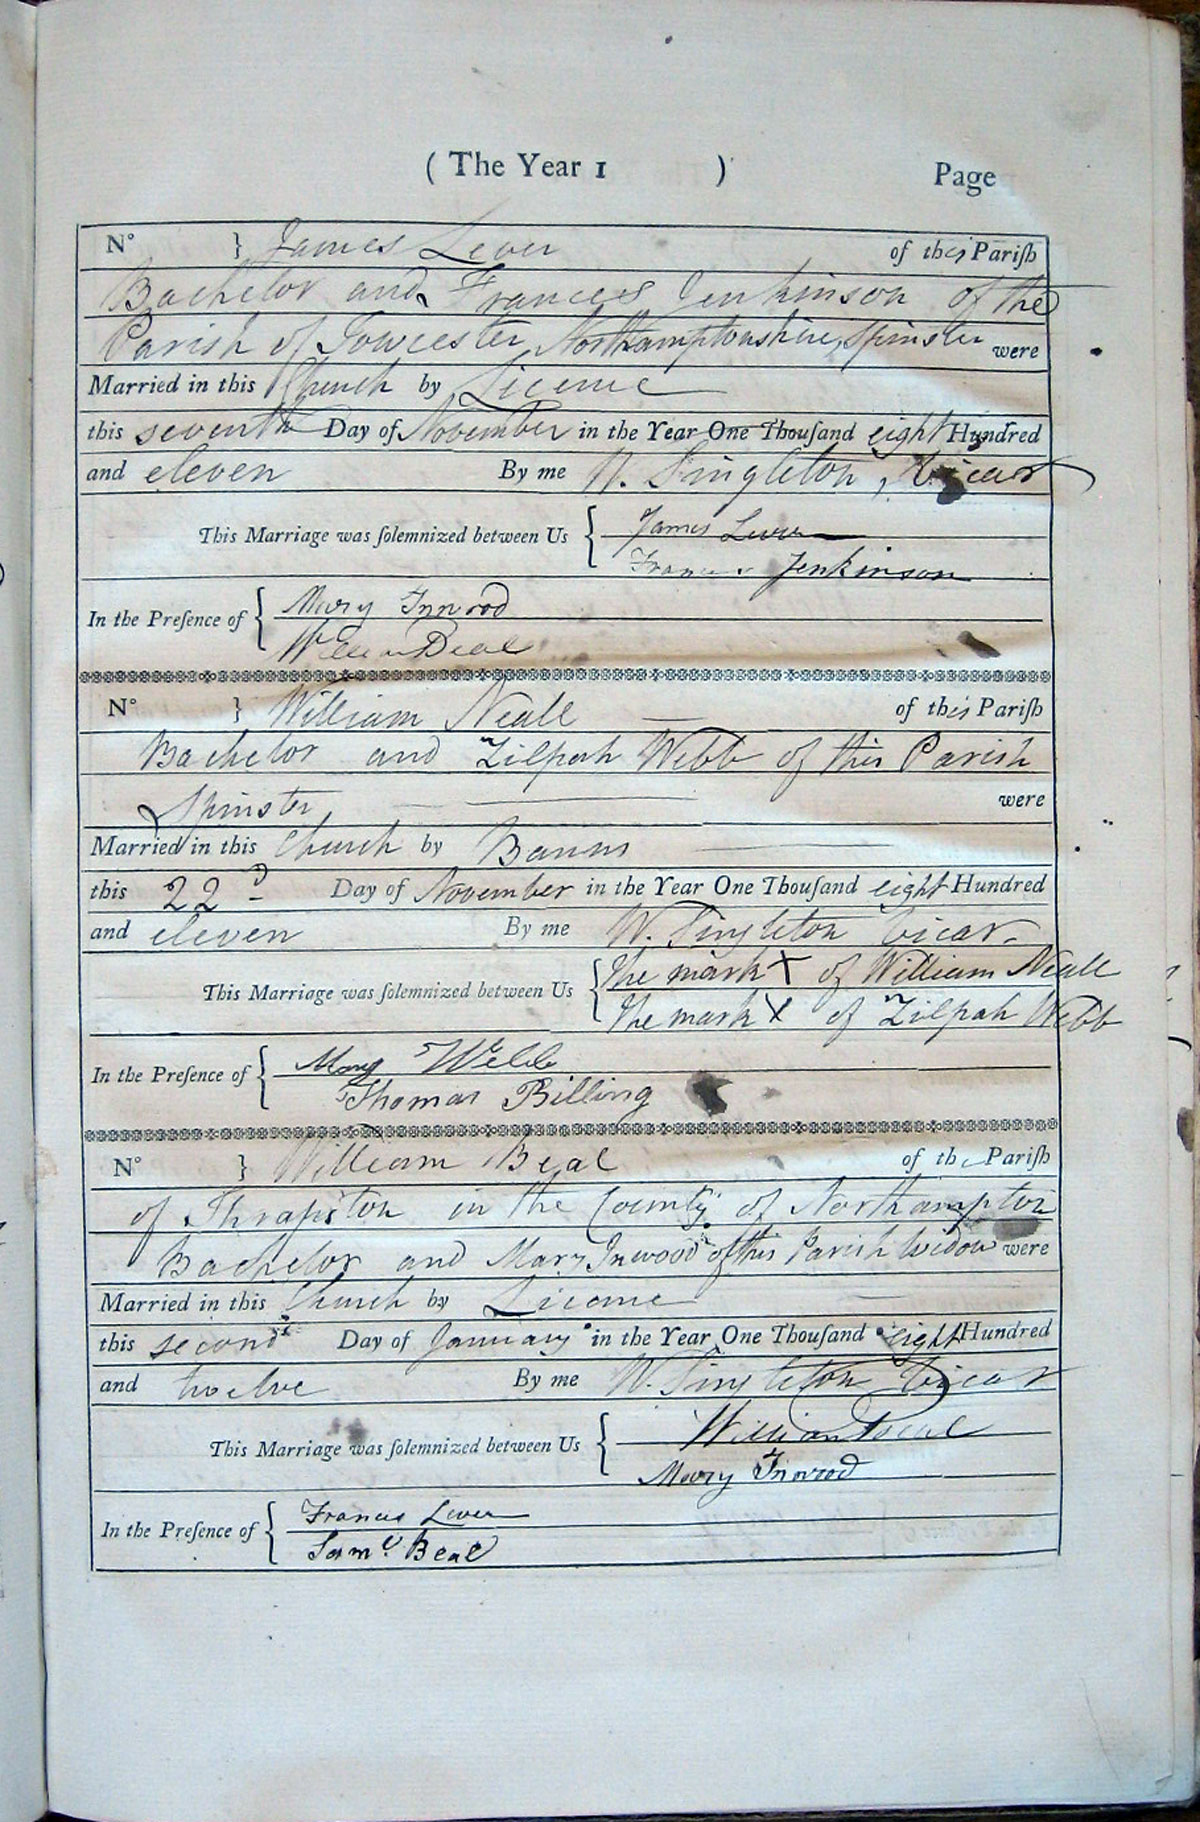 ( The Year 1 ) Page
N° } James Lever of this Pariſh
Bachelor and Frances Jenkinson of the
Parish of Towcester, Northamptonshire, Spinster were
Married in this Church by Licence
this seventh Day of November in the Year One Thouſand eight Hundred
and eleven By me W. Singleton, Vicar
This Marriage was ſolemnized between Us { James Lever
Frances Jenkinson
In the Preſence of { Mary Inwood
William Beal
N° } William Neall of this Pariſh
Bachelor and Zilpah Webb of this Parish
Spinster were
Married in this Church by Banns
this 22d Day of November in the Year One Thouſand eight Hundred
and eleven By me W. Singleton Vicar
This Marriage was ſolemnized between Us { The mark X of William Neall
The mark X of Zilpah Webb
In the Preſence of { Mary Webb
Thomas Billing
N° } William Beal of the Pariſh
of Thrapston in the County of Northampton
Bachelor and Mary Inwood of this Parish Widow were
Married in this Church by Licence
this second Day of January in the Year One Thouſand eight Hundred
and twelve By me W. Singleton Vicar
This Marriage was ſolemnized between Us { William Beal
Mary Inwood
In the Preſence of { Frances Lever
Saml. Beal